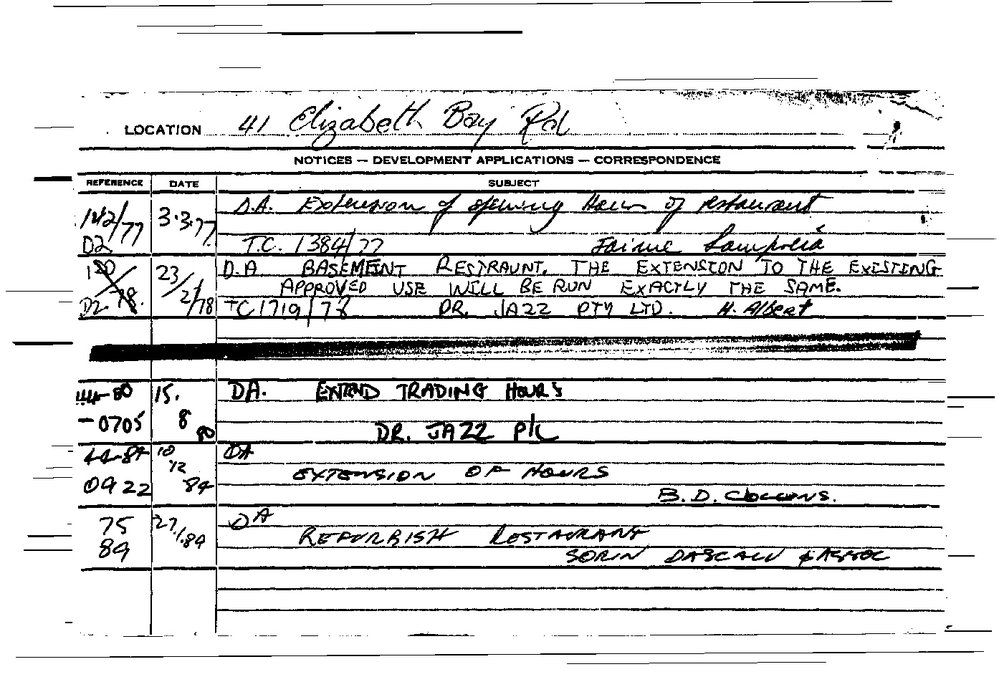 LOCATION 41 Elizabeth Bay Rd
NOTICES — DEVELOPMENT APPLICATIONS — CORRESPONDENCE
REFERENCE DATE SUBJECT
142/77 3.3.77 D.A. Extension of opening Hours of restaurant
D2 T.C. 1384/77 Jaime
180 23 D.A BASEMENT RESTRAUNT. THE EXTENSION TO THE EXISTING
2/78 APPROVED USE WILL BE RUN EXACTLY THE SAME.
D2.78. TC1719/78 DR. JAZZ PTY LTD. H. Albert
44-80 15. DA. EXTEND TRADING HOURS
-0705 8 80 DR. JAZZ P/L
44-84 10 DA
12 EXTENSION OF HOURS
0922 84 B.D. COLLINS.
75 27/ DA
.84 REFURBISH RESTAURANT
89 SORIN DASCALU & ASSOC